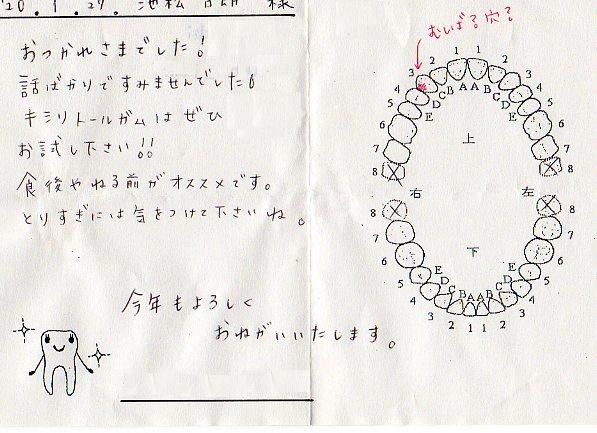 '20. 1. 27. 様
おつかれさまでした!
話ばかりですみませんでした
キシリトールガムは ぜひ
お試し下さい!!
食後やねる前がオススメです。
とりすぎには気をつけて下さいね。
今年もよろしく
おねがいいたします。
むしば?穴?
3 2 1 1 2 3
4 C B A A B C 4
5 D D 5
E E
6 上 6
7 7
8 8
右 左
8 8
7 下 7
6 E E 6
5 D D 5
4 C B A A B C 4
3 2 1 1 2 3